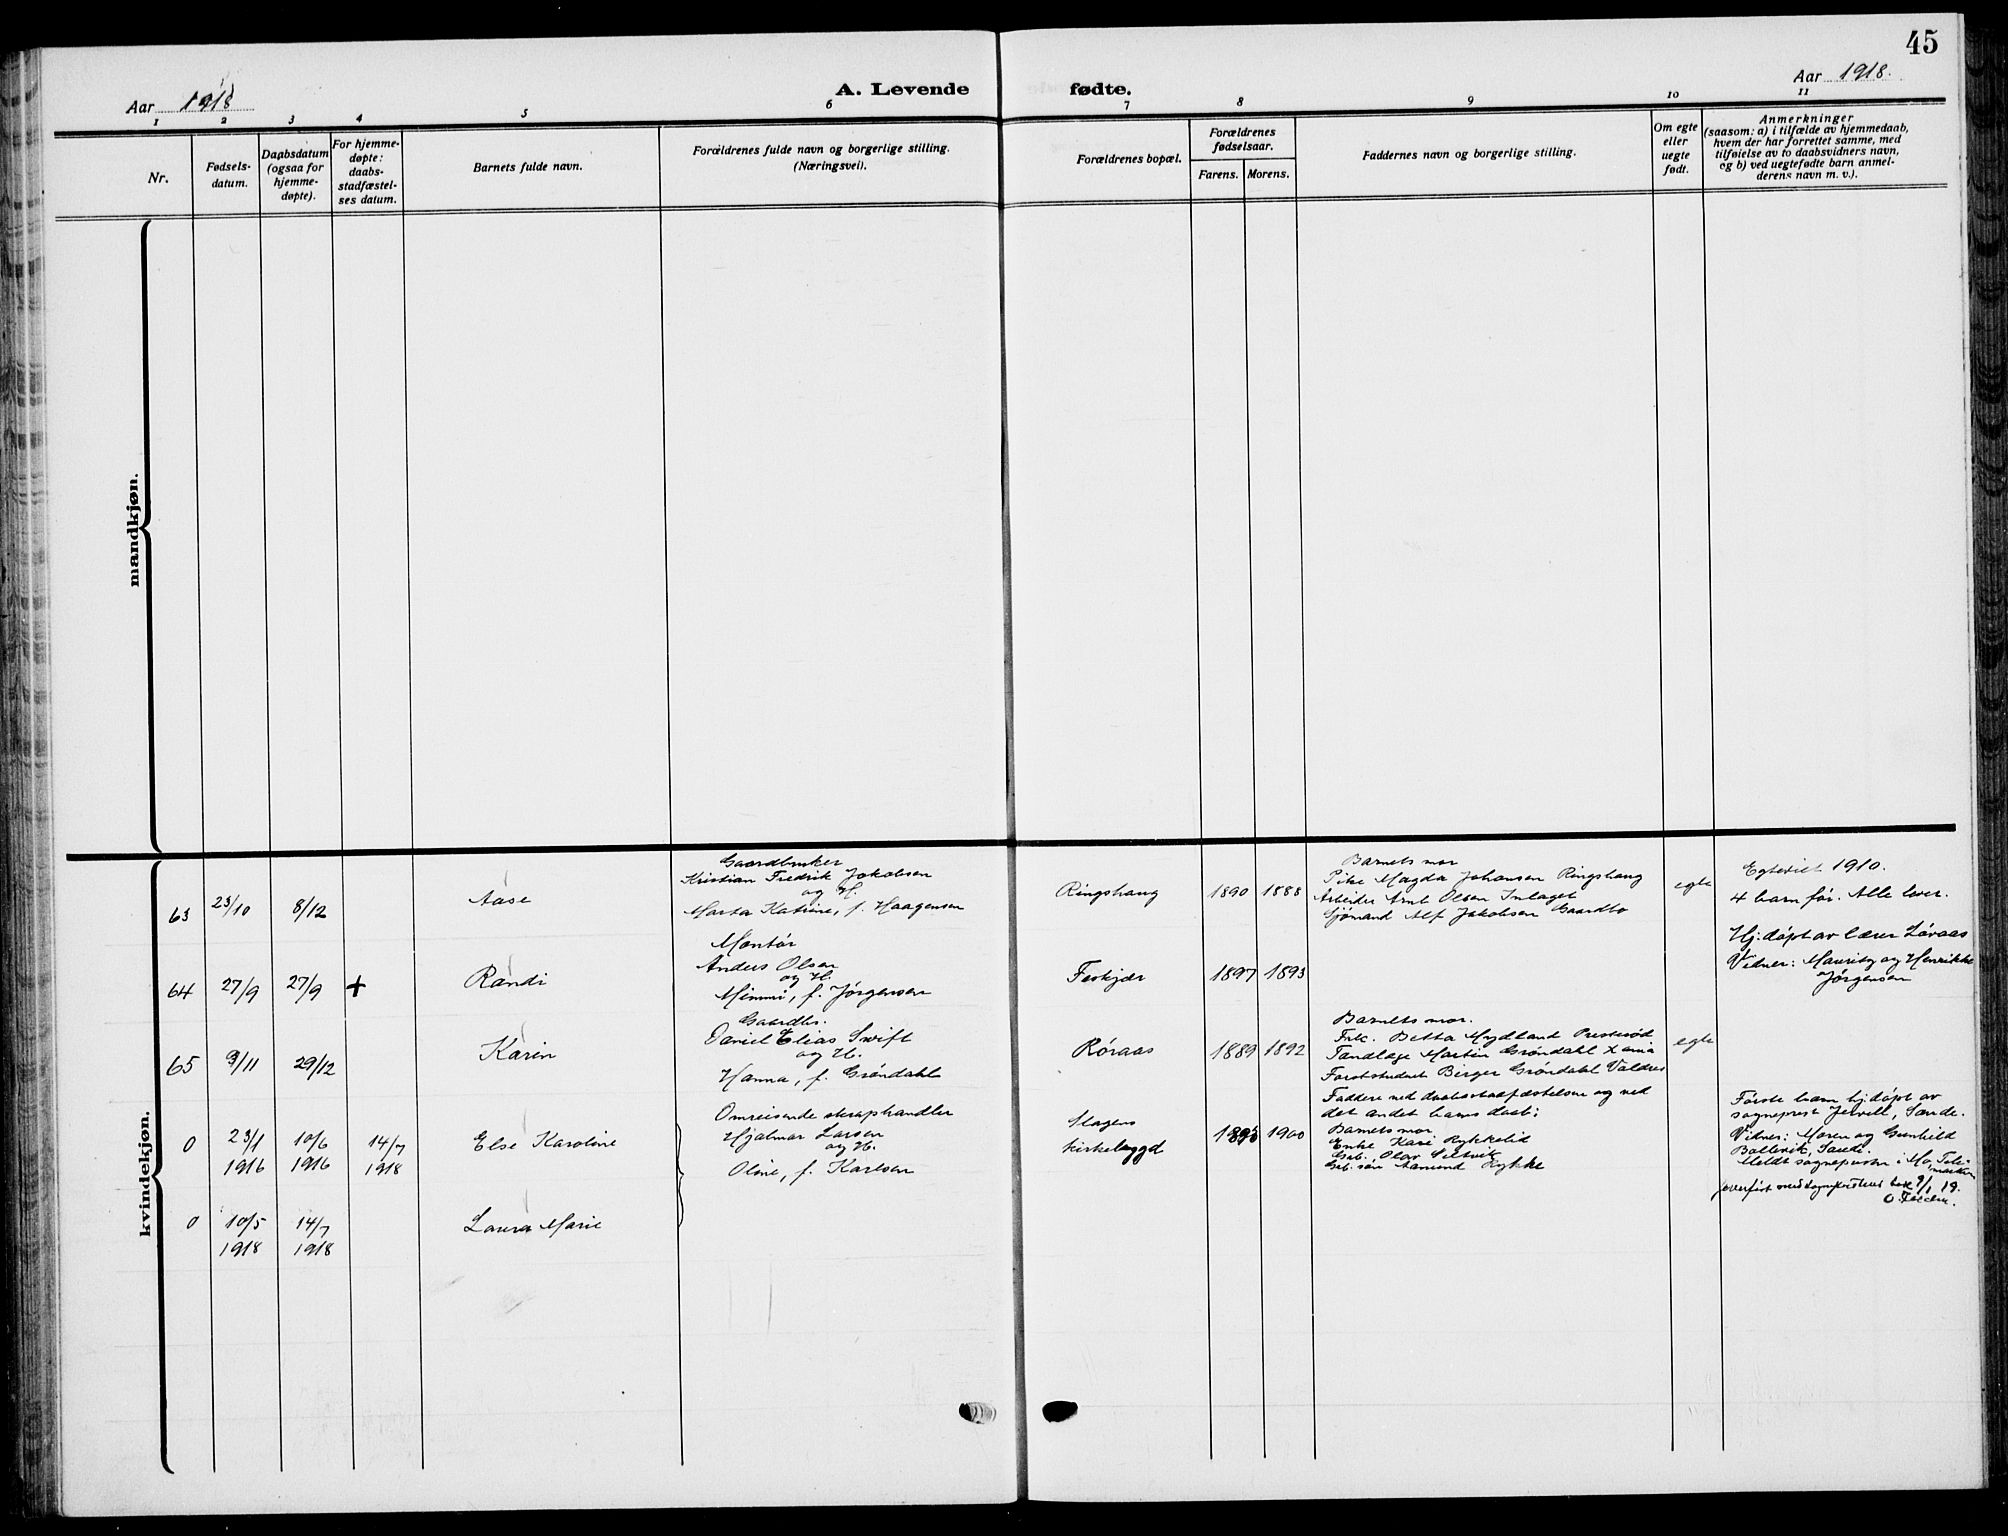 45
Aar 1918
A. Levende fødte.
Aar 1918.
1 2 3 4 5 6 7 8 9 10 11
Nr.
Fødsels-
datum.
Daabsdatum
(ogsaa for
hjemme-
døpte).
For hjemme-
døpte:
daabs-
stadfæstel-
ses datum.
Barnets fulde navn.
Forældrenes fulde navn og borgerlige stilling.
(Næringsvei).
Forældrenes bopæl.
Forældrenes
fødselsaar.
Farens. Morens.
Faddernes navn og borgerlige stilling.
Om egte
eller
uegte
født.
Anmerkninger
(saasom: a) i tilfælde av hjemmedaab,
hvem der har forrettet samme, med
tilføielse av to daabsvidners navn,
og b) ved uegtefødte barn anmel-
derens navn m. v.).
mandkjøn.
kvindekjøn.
63
23/10
8/12
Aase
Gaardbruker
Kristian Fredrik Jokobsen
og H.
Marta Katrine, f. Haagensen
Ringshaug
1890 1888
Barnets mor
Pike Magda Johansen Ringshaug
Arbeider Arnt Olsen
Sjømand Alf Jakobsen Gaardbo
egte
Egteviet 1910.
4 barn før. Alle lever.
64
27/9
27/9
+
Randi
Montør
Anders Olsen
og H.
Mimmi, f. Jørgensen
Feskjær
1897 1893
Hj:døpt av lærer Løvaas
Vidner: og Henrikke
Jørgensen
65
9/11
29/12
Karin
Gaardbr.
Daniel Elias Swift
og H.
Hanna, f. Grøndahl
Røraas
1889 1892
Barnets mor.
Frk. Betta Mydland
Tandlæge Martin Grøndahl Xania
Forststudent Birger Grøndahl Valdres
egte
0
23/1
1916
10/6
1916
14/7
1918
Else Karoline
Omreisende skraphandler
Hjalmar Larsen
og H.
Oline, f. Karlsen
Slagens
kirkebygd
1895 1900
Faddere ved daabsstadfæstelsen og ved
det andet barns daab:
Barnets mor
Enke Kari Rykkelid
Grb. Olav
Grb. søn Aamund Rykke
Første barn hj:døpt av
sogneprest Jervell, Sande.
Vidner: Moren og Gunhild
Bollerik, Sande.
Meldt sognepresten i Mo, Tele-
marken
9/1 19.
0
10/5
1918
14/7
1918
Laura Marie